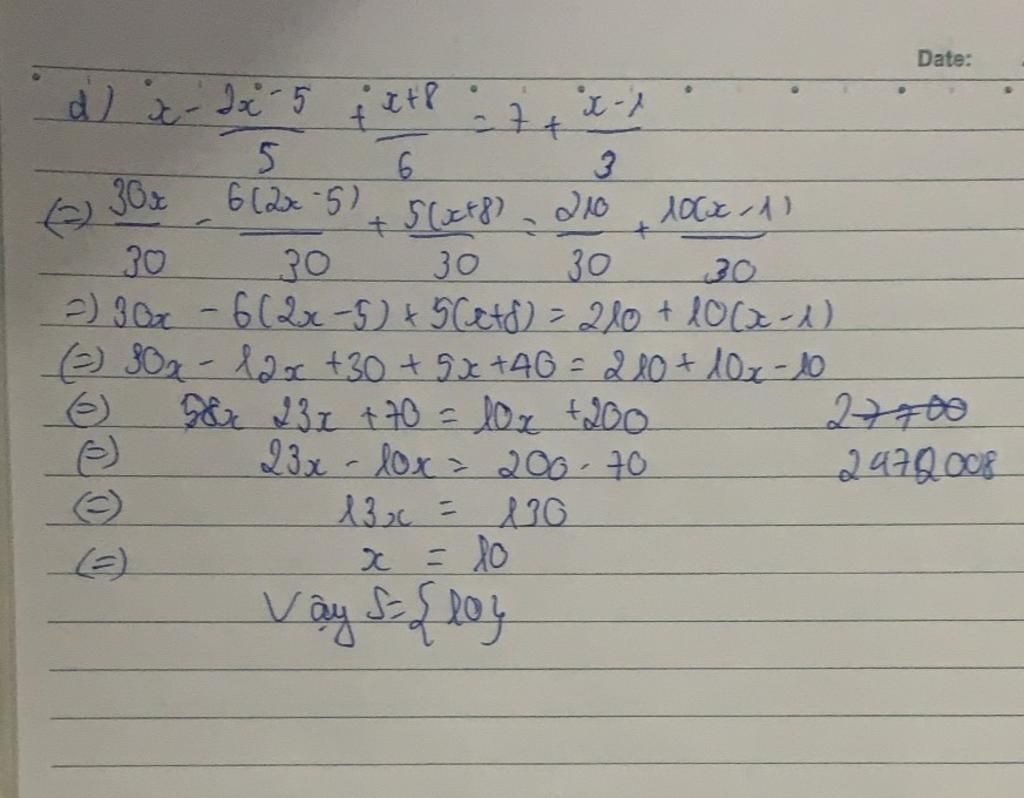 Date:
d) x - 2x - 5/5 + x+8/6 = 7 + x-1/3
(=) 30x/30 - 6(2x-5)/30 + 5(x+8)/30 = 210/30 + 10(x-1)/30
=) 30x - 6(2x-5) + 5(x+8) = 210 + 10(x-1)
(=) 30x - 12x + 30 + 5x + 40 = 210 + 10x - 10
(=) 23x + 70 = 10x + 200
(=) 23x - 10x = 200 - 70
(=) 13x = 130
(=) x = 10
Vậy S = {10}